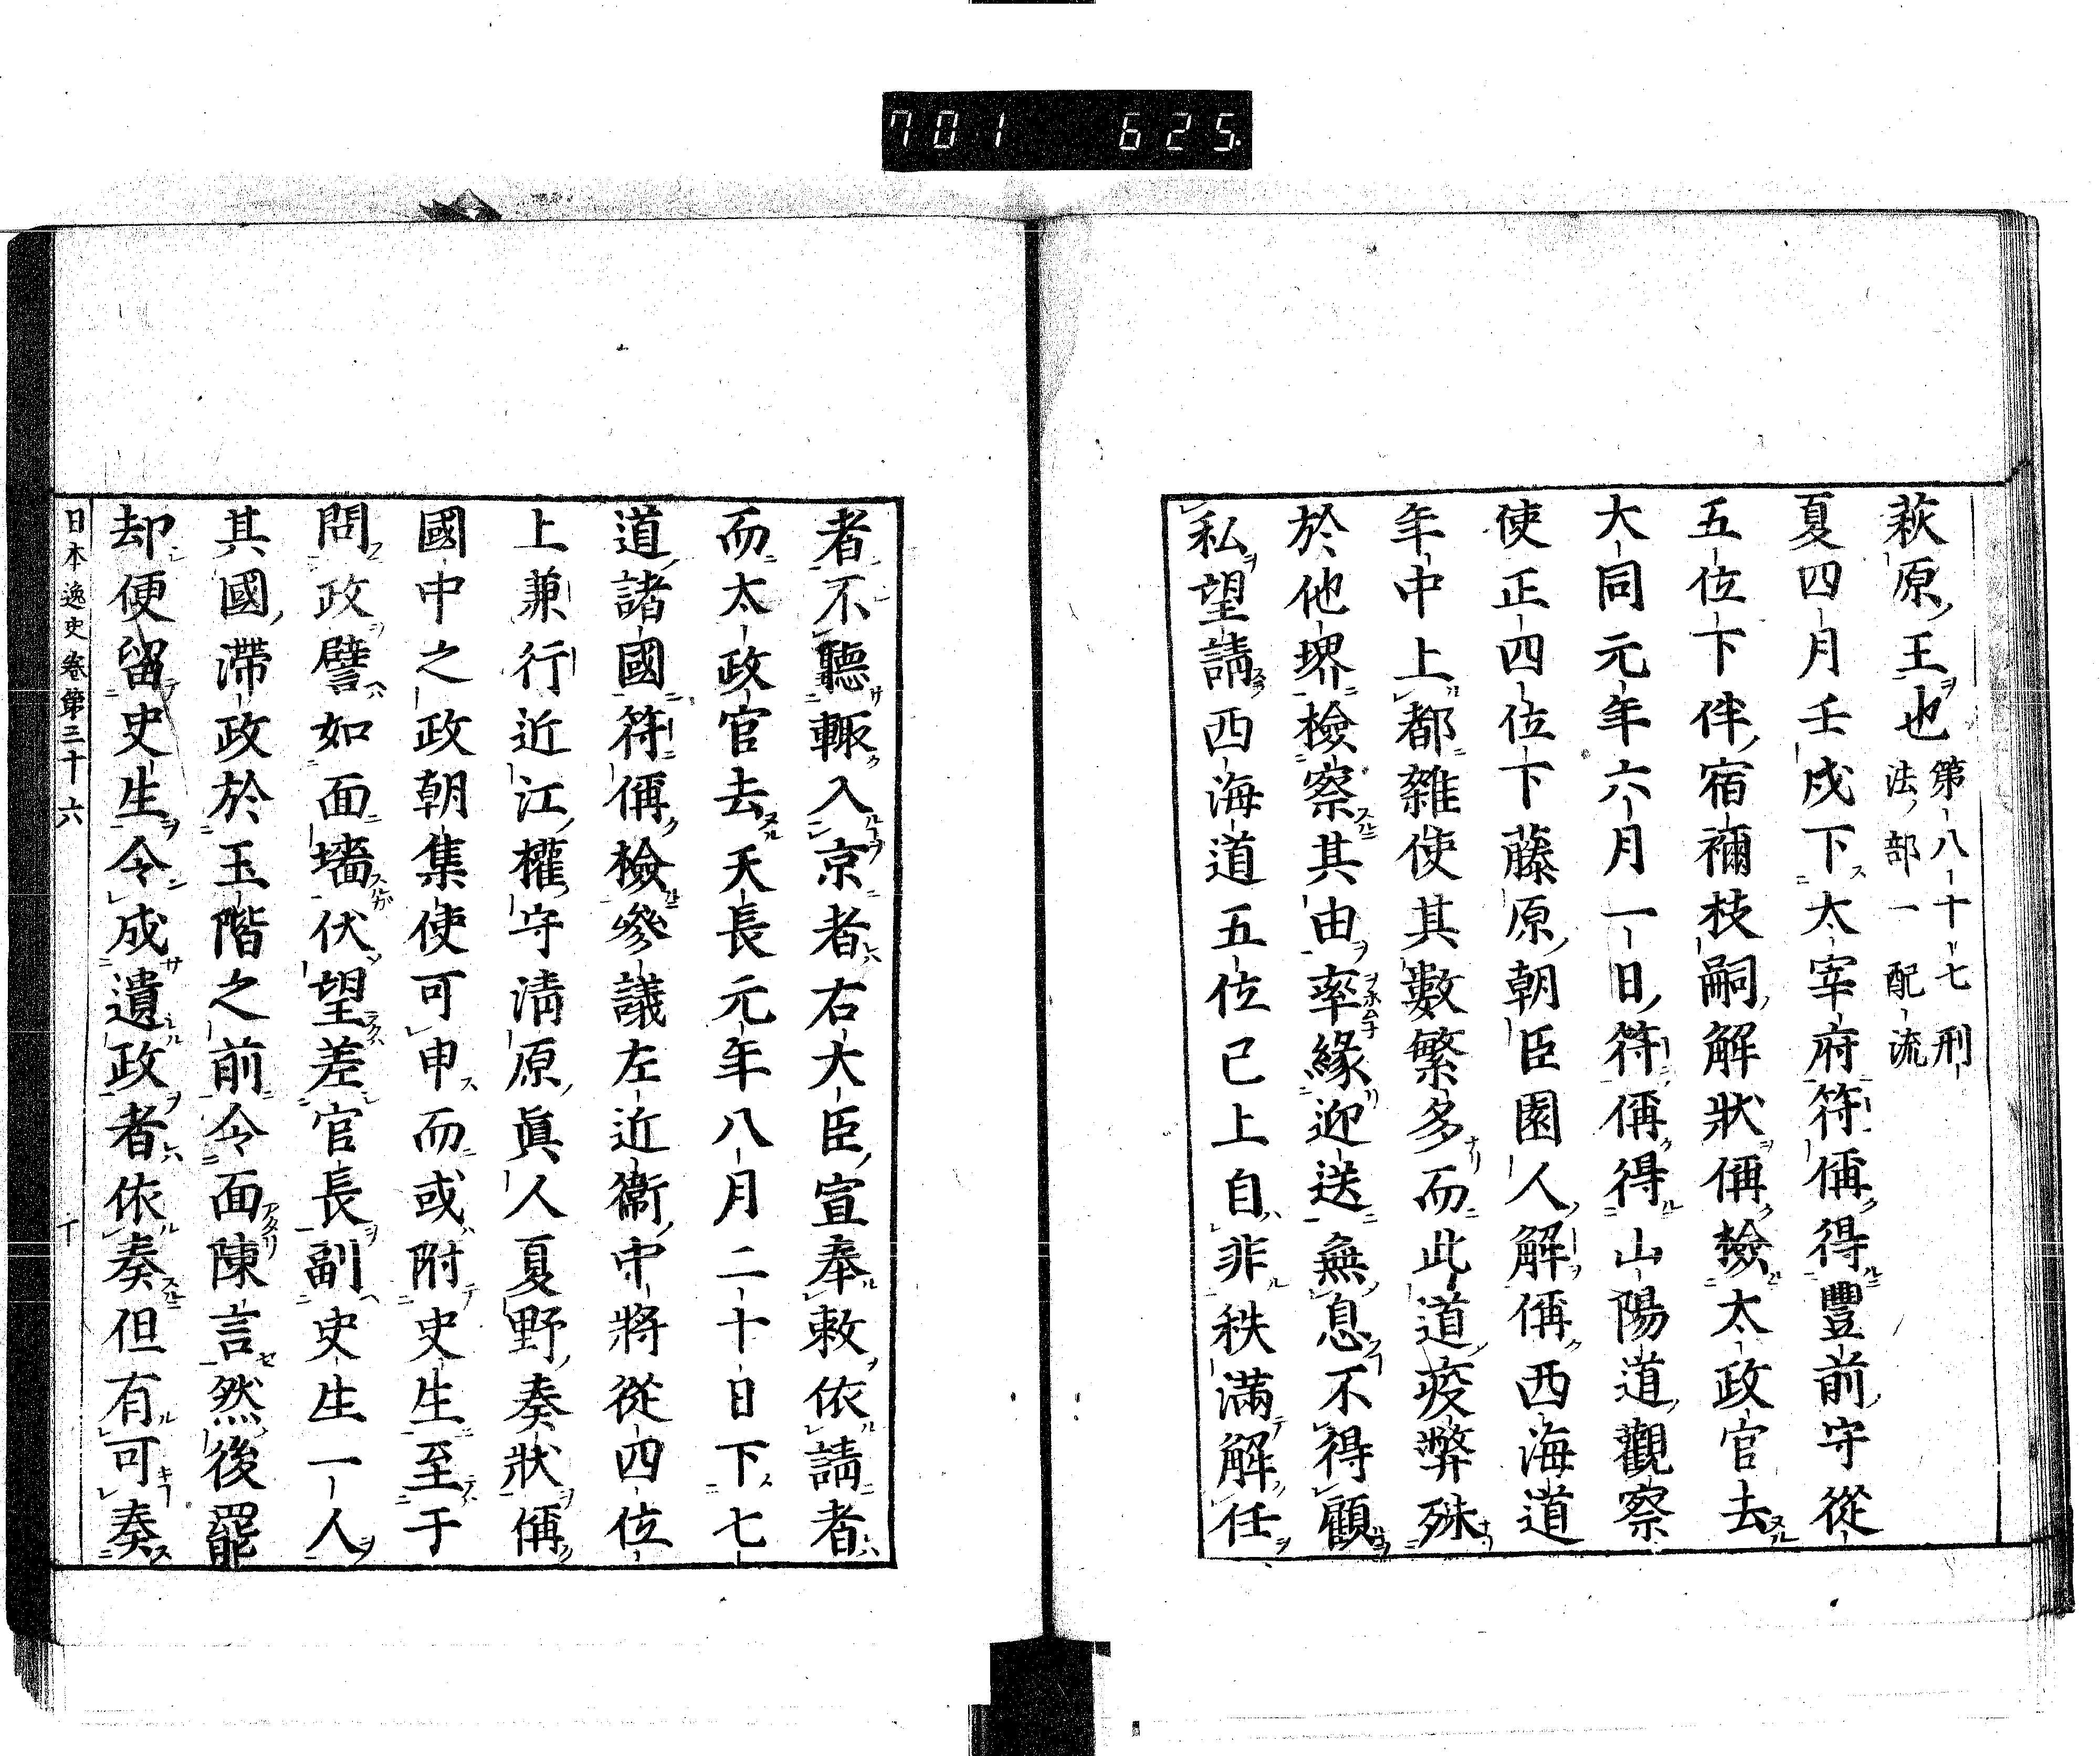 701 625
萩原王也
第八十七刑
法部一配流
夏四月壬戌下太宰府符偁得豐前守從
五位下伴宿禰枝嗣解狀偁撿太政官去
大同元年六月一日符偁得山陽道觀察
使正四位下藤原朝臣園人解偁西海道
年中上都雜使其數繁多而此道疫弊殊
於他堺檢察其由率緣迎送無息不得顧
私望請西海道五位已上自非秩滿解任
者不聽輙入京者右大臣宣奉敕依請者
而太政官去天長元年八月二十日下七
道諸國符偁檢參議左近衞中將從四位
上兼行近江權守淸原眞人夏野奏狀偁
國中之政朝集使可申而或附史生至于
問政譬如面墻伏望差官長副史生一人
其國滯政於玉階之前令面陳言然後罷
却便留史生令成遺政者依奏但有可奏
日本逸史卷第三十六